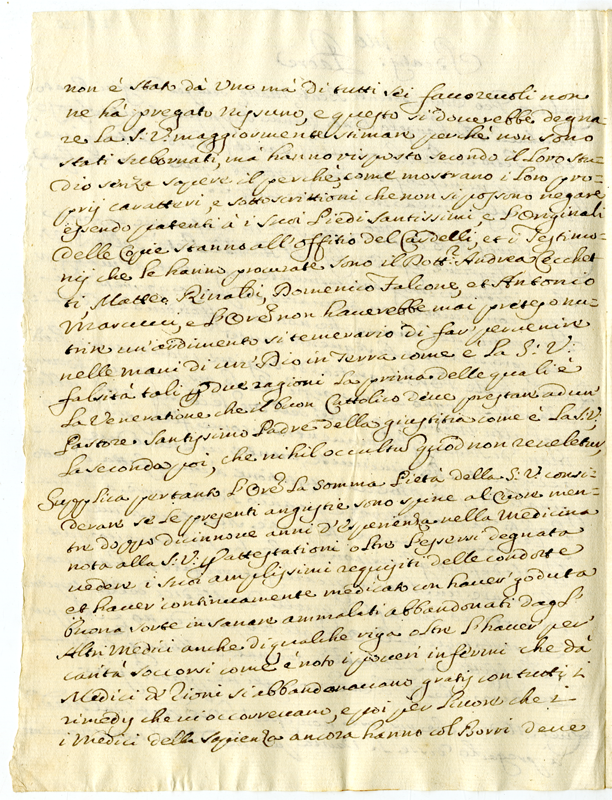 non è stato dà uno mà di tutti sei favorevoli non
ne hà pregato nissuno, e questo si doverebbe degna
re La S.V. maggiormente stimar perche non sono
stati subornati, mà hanno risposto secondo il Loro stu
dio senza sapere il perche, come mostrano i Loro pro
prij caratteri, e sottoscrittioni che non si possono negare
essendo patenti à i suoi Piedi Santissimi, e l'Originali
delle Copie stanno all'offitio del Cardelli, et i Testimo
nij che le hanno procurate sono il Dott.r Andrea Cecchet
ti, Matteo Rinaldi, Domenico Falcone, et Antonio
Marcucci, e L'Ore non haverebbe mai preteso nu
trire un'ardimento si temerario di far' pervenire
nelle mani di un' Dio in Terra come è La S.V.
falsità tali p due ragioni La prima delle quali è
La Veneratione che il buon Cattolico deve prestar ad un'
Pastore Santissimo Padre della giustitia come è La S.V.
La seconda poi, che nihil occultu quod non reveletur,
Supplica per tanto L'Ore La somma Pietà della S.V. consi
derare se le presenti angustie sono spine al Cuore men
tre doppo dicinnove anni d'esperienza nella Medicina
nota alla S.V. p attestationi oltre L'essersi degnata
vedere i suoi amplissimi requisiti delle condotte
et haver' continuamente medicato con haver' goduta
buona sorte in sanare ammalati abbandonati dagl'
Altri Medici anche di qualche riga oltre L'haver per
carità soccorsi come è noto i poveri infermi che dà
Medici di Rioni si abbandonavano gratis con tutti i
rimedij che vi occorrevano, e poi per Livore che i
i Medici della Sapienza ancora hanno col Borri deve